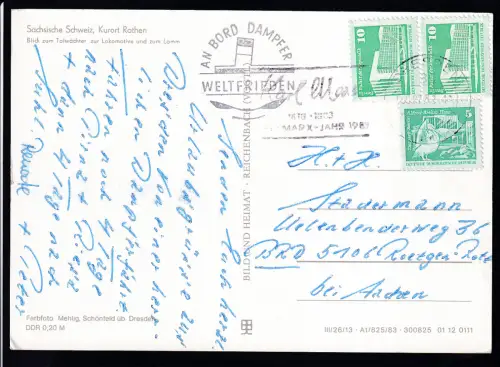 Sächsische Schweiz, Kurort Rathen
Blick zum Talwächter, zur Lokomotive und zum Lamm
AN BORD DAMPFER
WELTFRIEDEN
Karl Marx
1818 · 1883
MARX-JAHR 1983
10
10
5
Senden Euch herzl.
Urlaubsgrüsse zur
Zeit von einer herr-
lichen Dampferfahrt
fahren noch 4 Tage
nach
+ dann 4 Tage nach
Suhl. Renate + Peter
BILD UND HEIMAT · REICHENBACH (VOGTL)
H. + K.
Stadermann
36
BRD 5106 Roetgen-Rott
bei Aachen
Farbfoto Mehlig, Schönfeld üb. Dresden
DDR 0,20 M
III/26/13 · A1/825/83 · 300825 01 12 0111